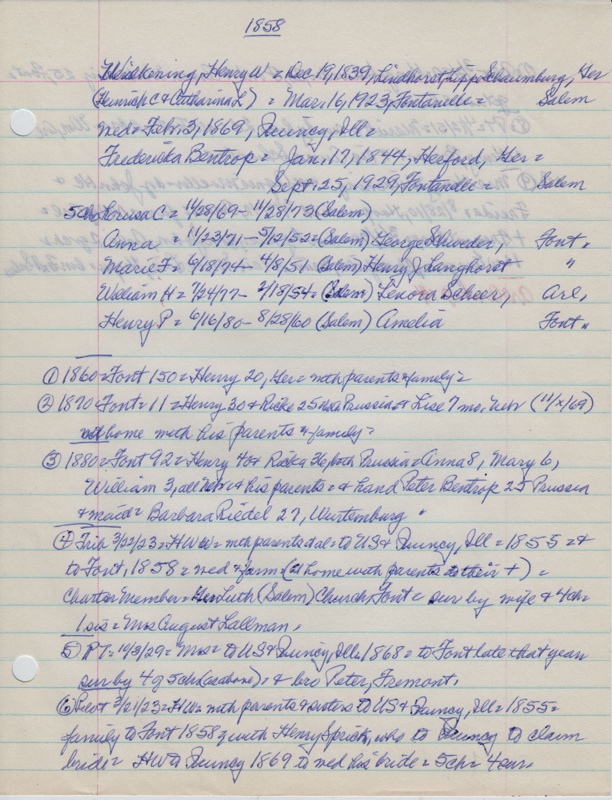 1858
Weidkening, Henry W = Dec 19, 1839, Lindhorst, Lippe Schaumburg, Ger
(Heinrich C & Catharina L) = Mar. 16, 1923, Fontanelle = Salem
wed = Feb. 3, 1869, Quincy, Ill =
Fredericka Bentrop = Jan. 17, 1844, Herford, Ger =
Sept. 25, 1929, Fontanelle = Salem
5 chs Lorissa C = 11/28/69 - 11/28/73 (Salem)
Anna = 11/23/71 - 5/12/52 = (Salem) George Schroeder, Font =
Marie F = 6/18/74 - 4/8/51 (Salem) Henry J. Langhorst "
William H = 7/24/77 - 2/18/54 = (Salem) Lenora Scheer, Arl,
Henry P = 6/16/80 - 8/28/60 (Salem) Amelia Font "
① 1860 = Font 150 = Henry 20, Ger = with parents & family =
② 1870 Font = 11 = Henry 30 & Ricke 25 both Prussia & Lise 7 mo. Nebr (11/x/69)
home with his parents & family =
③ 1880 = Font 92 = Henry 40 & Ricka 36, both Prussia = Anna 8, Mary 6,
William 3, all Nebr & his parents = & hand Peter Bentrop 25 Prussia
& maid = Barbara Riedel 27, Wurtemburg "
④ Trib 3/22/23 = HWW = with parents dal = to US & Quincy, Ill = 1855 = &
to Font, 1858 = wed & farm = (at home with parents to their +) =
Charter Member = Ger Luth (Salem) Church, Font = surv by wife & 4 ch =
1 sis = Mrs August Lallman,
⑤ PT = 10/3/29 = Mrs = to US & Quincy, Ill. 1868 = to Font late that year
surv by 4 of 5 ch (as above) = & bro Peter, Fremont.
⑥ 3/21/23 = HW = with parents & sisters to US & Quincy, Ill = 1855 =
family to Font 1858 with Henry Sprick, who to Quincy to claim
bride = HW to Quincy 1869 to wed his bride = 5 ch = 4 surv,